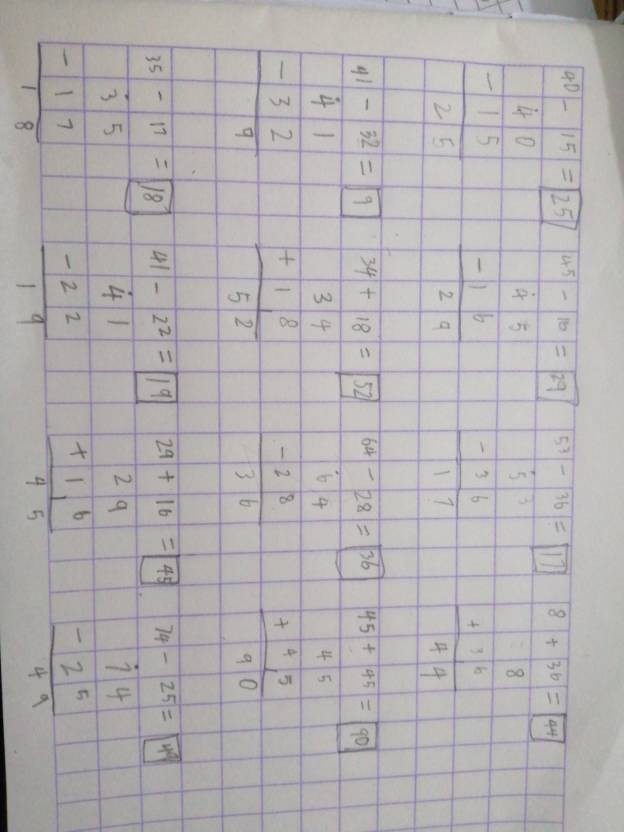 40 - 15 = 25 45 - 16 = 29 53 - 36 = 17 8 + 36 = 44
4 0 4 5 5 3 8
- 1 5 - 1 6 - 3 6 + 3 6
2 5 2 9 1 7 4 4
41 - 32 = 9 34 + 18 = 52 64 - 28 = 36 45 + 45 = 90
4 1 3 4 6 4 4 5
- 3 2 + 1 8 - 2 8 + 4 5
9 5 2 3 6 9 0
35 - 17 = 18 41 - 22 = 19 29 + 16 = 45 74 - 25 = 49
3 5 4 1 2 9 7 4
- 1 7 - 2 2 + 1 6 - 2 5
1 8 1 9 4 5 4 9